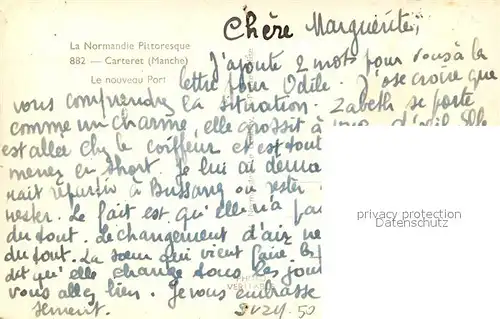 La Normandie Pittoresque
882 — Carteret (Manche)
Le nouveau Port
Chère Marguerite,
J'ajoute 2 mots pour vous à la
lettre pour Odile. J'ose croire que
vous comprendrez la situation. Zabeth se porte
comme un charme, elle grossit à d'œil. Elle
est allée chez le coiffeur et est tout
menez en short. Je lui ai deman
rait repartir à Bussang ou rester
rester. Le fait est qu'elle n'a pas
du tout. Le changement d'air ne
du tout. La sœur qui vient faire
dit qu'elle change tous les jours
vous allez bien. Je vous embrasse
sement. Suzy. 50
privacy protection
Datenschutz
VERITABLE